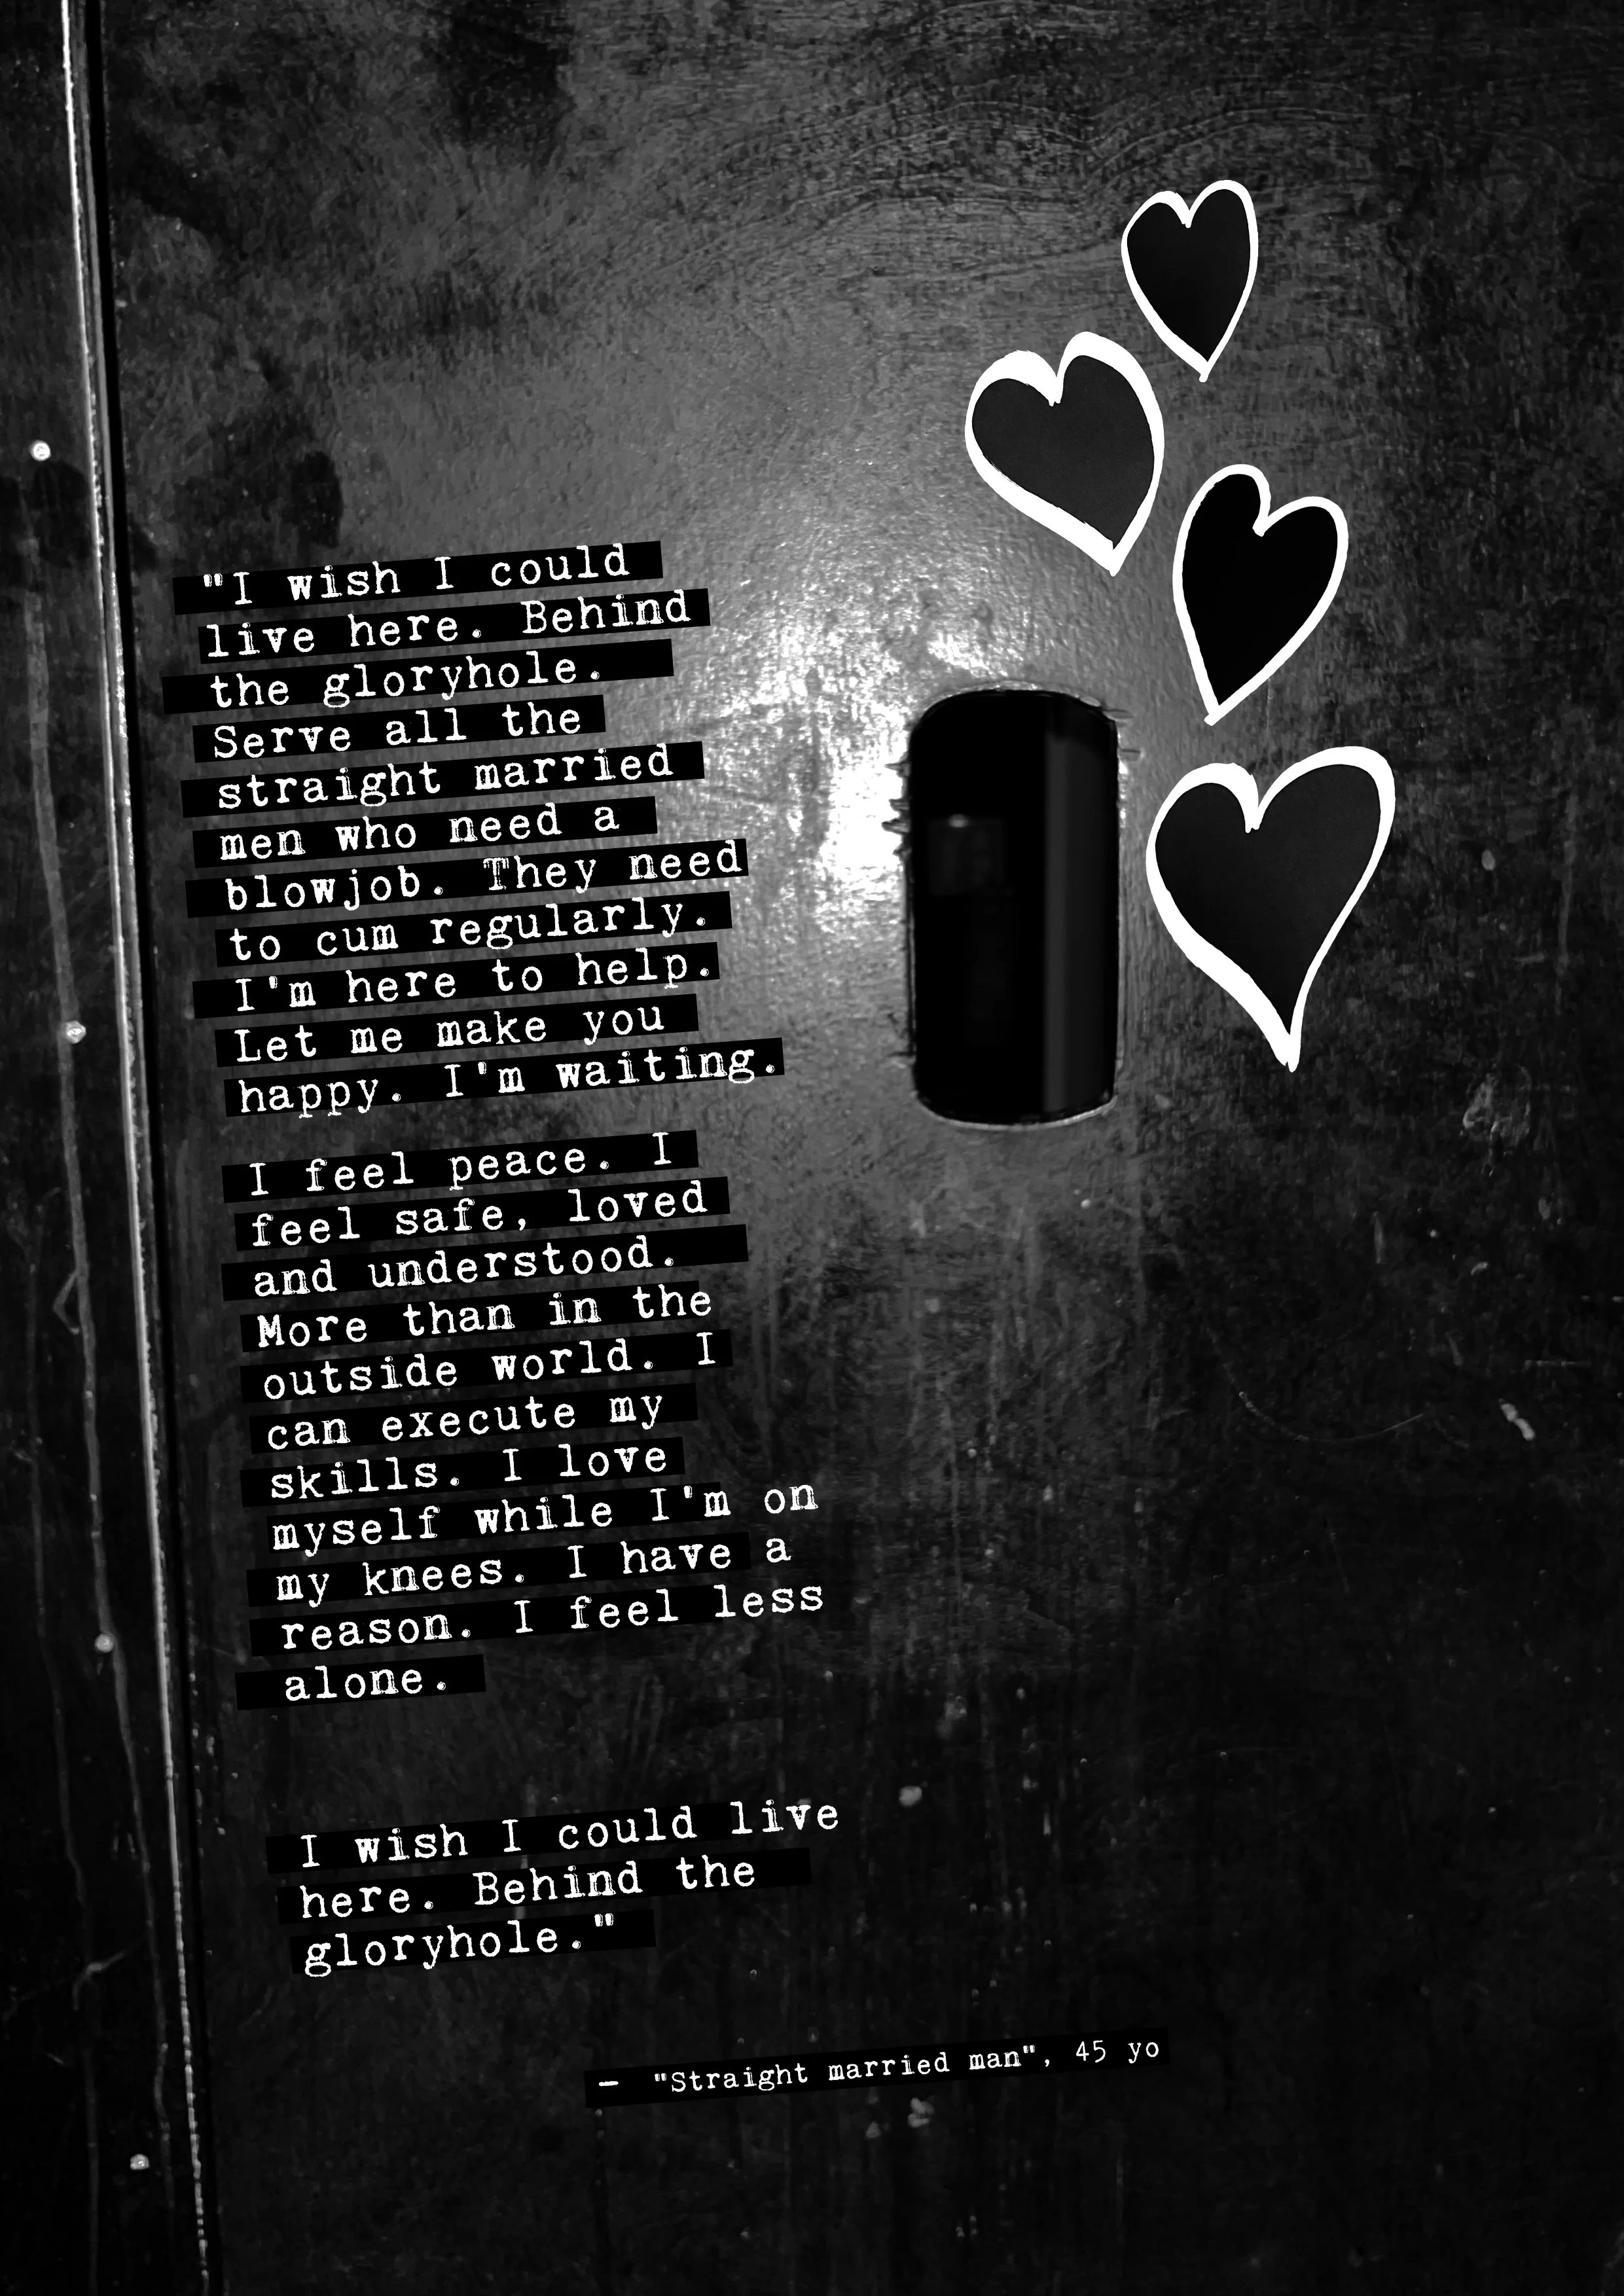 "I wish I could
live here. Behind
the gloryhole.
Serve all the
straight married
men who need a
blowjob. They need
to cum regularly.
I'm here to help.
Let me make you
happy. I'm waiting.
I feel peace. I
feel safe, loved
and understood.
More than in the
outside world. I
can execute my
skills. I love
myself while I'm on
my knees. I have a
reason. I feel less
alone.
I wish I could live
here. Behind the
gloryhole."
— "Straight married man", 45 yo